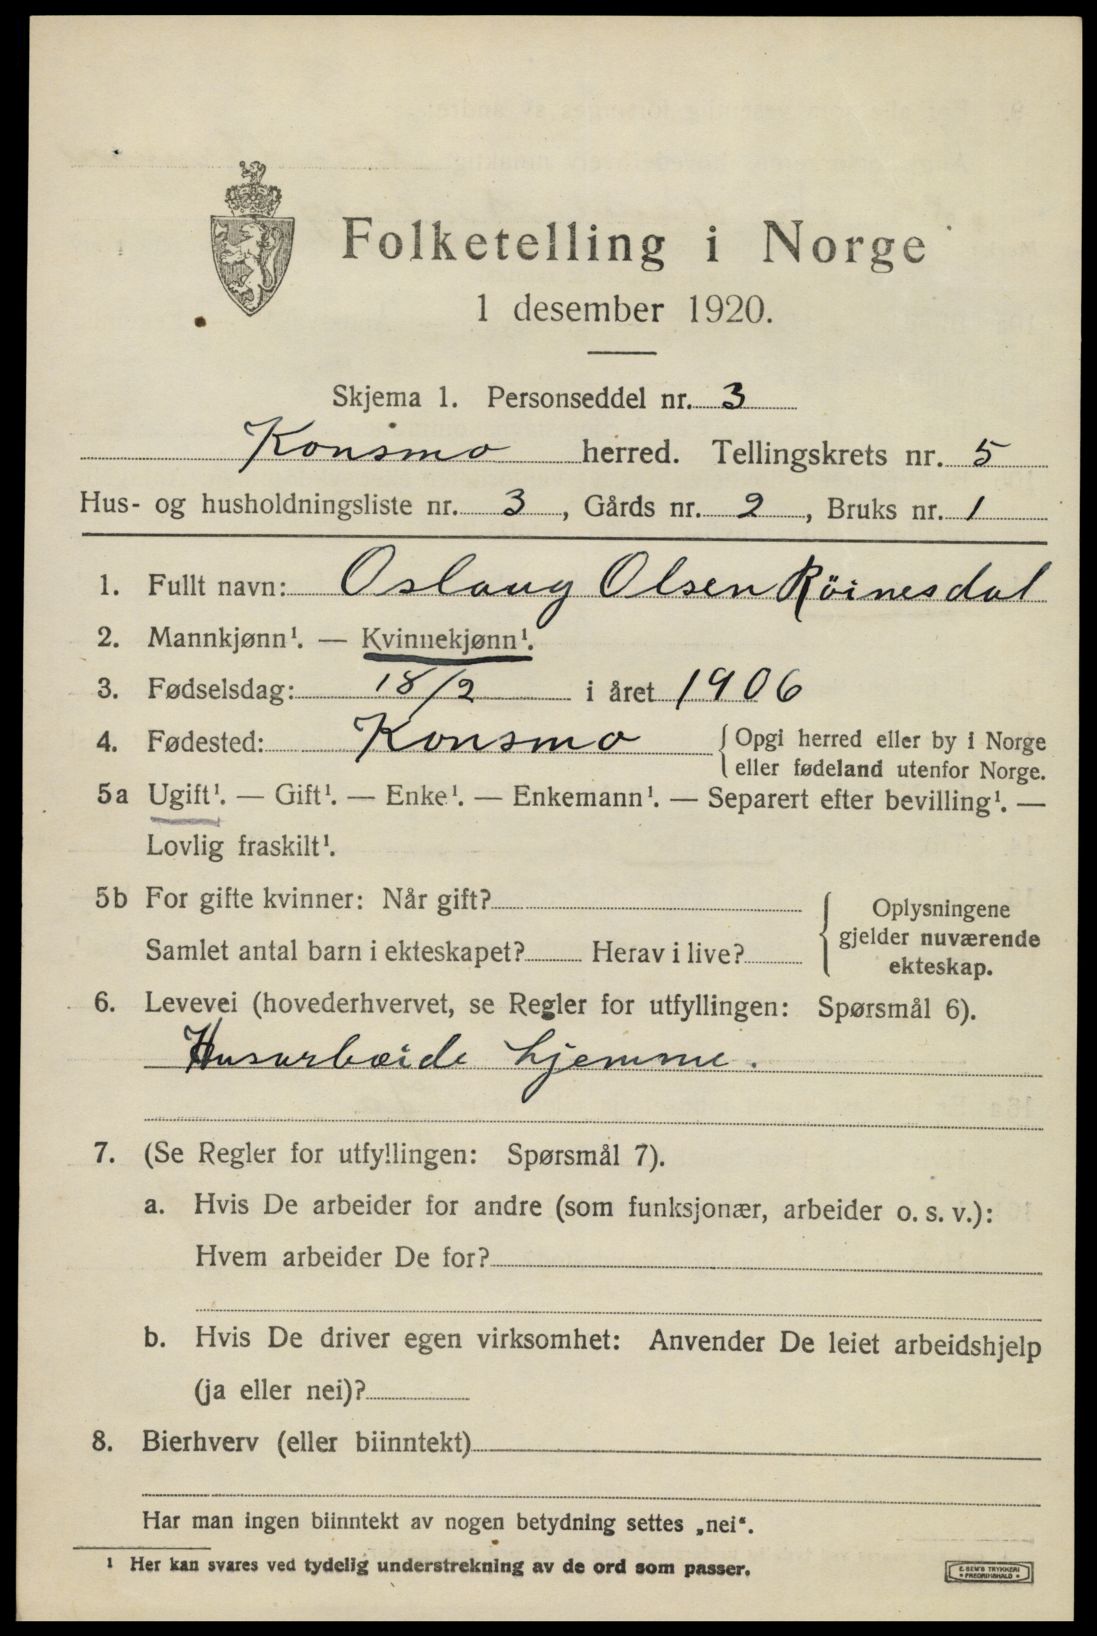 Folketelling i Norge
1 desember 1920.
Skjema 1. Personseddel nr. 3
Konsmo herred. Tellingskrets nr. 5
Hus- og husholdningsliste nr. 3, Gårds nr. 2, Bruks nr. 1
1. Fullt navn: Oslaug Olsen Röinesdal
2. Mannkjønn¹. — Kvinnekjønn¹.
3. Fødselsdag: 18/2 i året 1906
4. Fødested: Konsmo { Opgi herred eller by i Norge
eller fødeland utenfor Norge.
5a Ugift¹. — Gift¹. — Enke¹. — Enkemann¹. — Separert efter bevilling¹. —
Lovlig fraskilt¹.
5b For gifte kvinner: Når gift?
Samlet antal barn i ekteskapet? Herav i live?
{ Oplysningene
gjelder nuværende
ekteskap.
6. Levevei (hovederhvervet, se Regler for utfyllingen: Spørsmål 6).
Husarbeide hjemme.
7. (Se Regler for utfyllingen: Spørsmål 7).
a. Hvis De arbeider for andre (som funksjonær, arbeider o. s. v.):
Hvem arbeider De for?
b. Hvis De driver egen virksomhet: Anvender De leiet arbeidshjelp
(ja eller nei)?
8. Bierhverv (eller biinntekt)
Har man ingen biinntekt av nogen betydning settes „nei“.
¹ Her kan svares ved tydelig understrekning av de ord som passer.
E. SEM'S TRYKKERI
• FREDRIKSHALD •